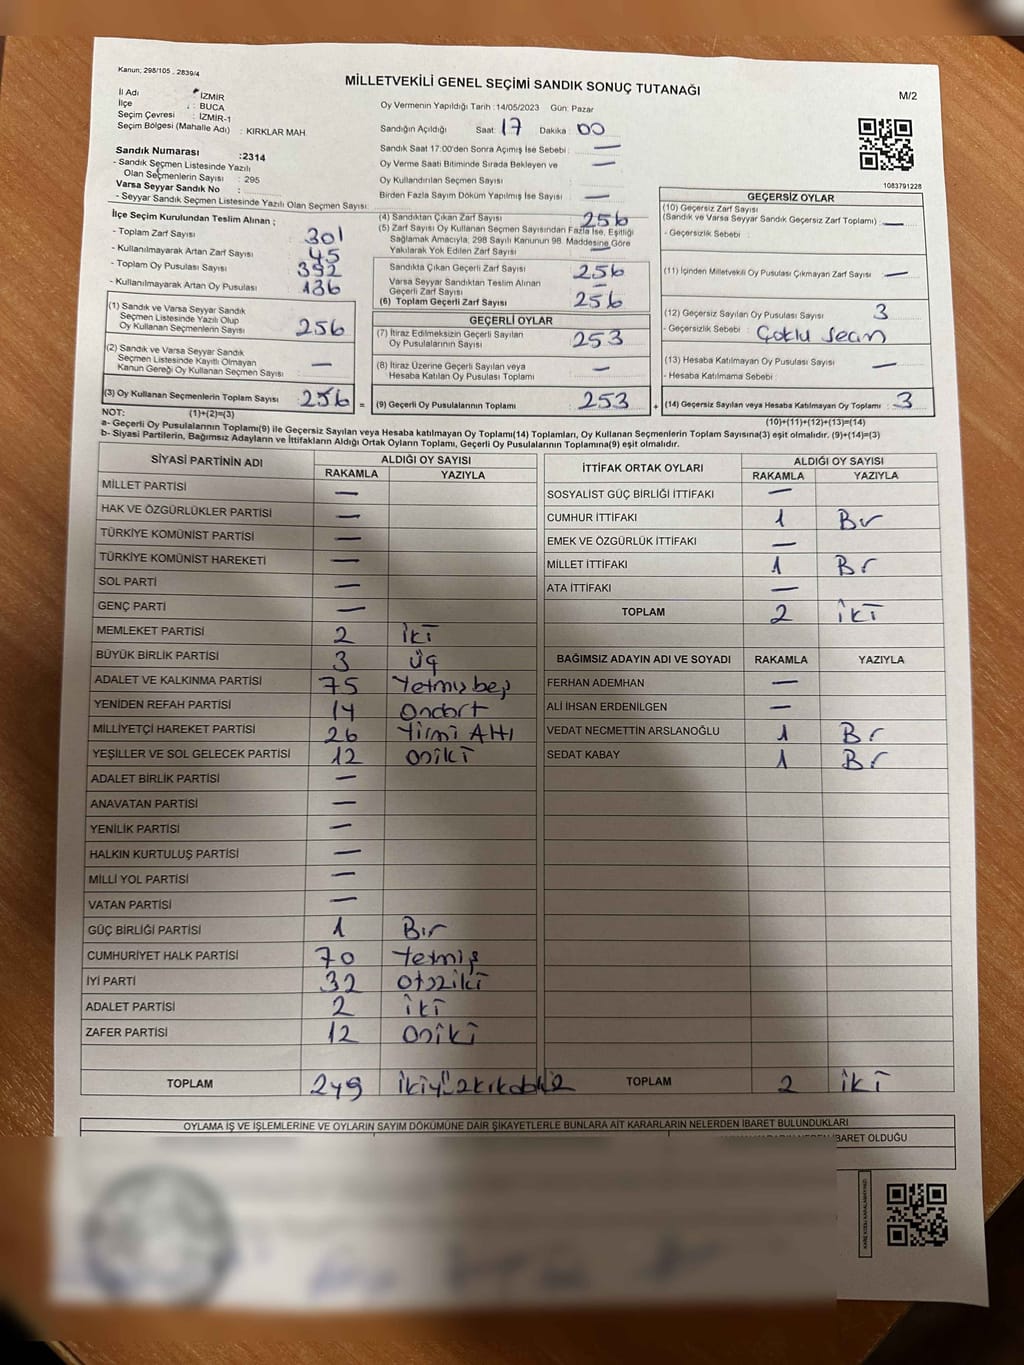 Kanun; 298/105 , 2839/4
MİLLETVEKİLİ GENEL SEÇİMİ SANDIK SONUÇ TUTANAĞI
M/2
İl Adı : İZMİR
İlçe : BUCA
Seçim Çevresi : İZMİR-1
Seçim Bölgesi (Mahalle Adı) : KIRKLAR MAH.
Sandık Numarası :2314
- Sandık Seçmen Listesinde Yazılı
Olan Seçmenlerin Sayısı : 295
Varsa Seyyar Sandık No :
- Seyyar Sandık Seçmen Listesinde Yazılı Olan Seçmen Sayısı:
Oy Vermenin Yapıldığı Tarih :14/05/2023 Gün: Pazar
Sandığın Açıldığı Saat: 17 Dakika : 00
Sandık Saat 17:00'den Sonra Açılmış İse Sebebi : —
Oy Verme Saati Bitiminde Sırada Bekleyen ve —
Oy Kullandırılan Seçmen Sayısı :
Birden Fazla Sayım Döküm Yapılmış İse Sayısı : —
1083791228
İlçe Seçim Kurulundan Teslim Alınan ;
- Toplam Zarf Sayısı : 301
- Kullanılmayarak Artan Zarf Sayısı : 45
- Toplam Oy Pusulası Sayısı : 392
- Kullanılmayarak Artan Oy Pusulası : 136
(1) Sandık ve Varsa Seyyar Sandık
Seçmen Listesinde Yazılı Olup
Oy Kullanan Seçmenlerin Sayısı : 256
(2) Sandık ve Varsa Seyyar Sandık
Seçmen Listesinde Kayıtlı Olmayan
Kanun Gereği Oy Kullanan Seçmen Sayısı : —
(3) Oy Kullanan Seçmenlerin Toplam Sayısı : 256 =
(4) Sandıktan Çıkan Zarf Sayısı : 256
(5) Zarf Sayısı Oy Kullanan Seçmen Sayısından Fazla İse, Eşitliği
Sağlamak Amacıyla, 298 Sayılı Kanunun 98. Maddesine Göre
Yakılarak Yok Edilen Zarf Sayısı : —
Sandıkta Çıkan Geçerli Zarf Sayısı : 256
Varsa Seyyar Sandıktan Teslim Alınan
Geçerli Zarf Sayısı : —
(6) Toplam Geçerli Zarf Sayısı : 256
GEÇERLİ OYLAR
(7) İtiraz Edilmeksizin Geçerli Sayılan
Oy Pusulalarının Sayısı : 253
(8) İtiraz Üzerine Geçerli Sayılan veya
Hesaba Katılan Oy Pusulası Toplamı : —
(9) Geçerli Oy Pusulalarının Toplamı : 253 +
GEÇERSİZ OYLAR
(10) Geçersiz Zarf Sayısı
(Sandık ve Varsa Seyyar Sandık Geçersiz Zarf Toplamı) : —
- Geçersizlik Sebebi :
(11) İçinden Milletvekili Oy Pusulası Çıkmayan Zarf Sayısı : —
(12) Geçersiz Sayılan Oy Pusulası Sayısı : 3
- Geçersizlik Sebebi : Çoklu Secim
(13) Hesaba Katılmayan Oy Pusulası Sayısı : —
- Hesaba Katılmama Sebebi :
(14) Geçersiz Sayılan veya Hesaba Katılmayan Oy Toplamı : 3
NOT: (1)+(2)=(3)
(10)+(11)+(12)+(13)=(14)
a- Geçerli Oy Pusulalarının Toplamı(9) ile Geçersiz Sayılan veya Hesaba katılmayan Oy Toplamı(14) Toplamları, Oy Kullanan Seçmenlerin Toplam Sayısına(3) eşit olmalıdır. (9)+(14)=(3)
b- Siyasi Partilerin, Bağımsız Adayların ve İttifakların Aldığı Ortak Oyların Toplamı, Geçerli Oy Pusulalarının Toplamına(9) eşit olmalıdır.
SİYASİ PARTİNİN ADI ALDIĞI OY SAYISI
RAKAMLA YAZIYLA
MİLLET PARTİSİ —
HAK VE ÖZGÜRLÜKLER PARTİSİ —
TÜRKİYE KOMÜNİST PARTİSİ —
TÜRKİYE KOMÜNİST HAREKETİ —
SOL PARTİ —
GENÇ PARTİ —
MEMLEKET PARTİSİ 2 iki
BÜYÜK BİRLİK PARTİSİ 3 üç
ADALET VE KALKINMA PARTİSİ 75 Yetmişbeş
YENİDEN REFAH PARTİSİ 14 Ondört
MİLLİYETÇİ HAREKET PARTİSİ 26 Yirmi Altı
YEŞİLLER VE SOL GELECEK PARTİSİ 12 oniki
ADALET BİRLİK PARTİSİ —
ANAVATAN PARTİSİ —
YENİLİK PARTİSİ —
HALKIN KURTULUŞ PARTİSİ —
MİLLİ YOL PARTİSİ —
VATAN PARTİSİ —
GÜÇ BİRLİĞİ PARTİSİ 1 Bir
CUMHURİYET HALK PARTİSİ 70 Yetmiş
İYİ PARTİ 32 otuziki
ADALET PARTİSİ 2 iki
ZAFER PARTİSİ 12 oniki
TOPLAM 249
İTTİFAK ORTAK OYLARI ALDIĞI OY SAYISI
RAKAMLA YAZIYLA
SOSYALİST GÜÇ BİRLİĞİ İTTİFAKI —
CUMHUR İTTİFAKI 1 Bir
EMEK VE ÖZGÜRLÜK İTTİFAKI —
MİLLET İTTİFAKI 1 Bir
ATA İTTİFAKI —
TOPLAM 2 iki
BAĞIMSIZ ADAYIN ADI VE SOYADI RAKAMLA YAZIYLA
FERHAN ADEMHAN —
ALİ İHSAN ERDENİLGEN —
VEDAT NECMETTİN ARSLANOĞLU 1 Bir
SEDAT KABAY 1 Bir
TOPLAM 2 iki
OYLAMA İŞ VE İŞLEMLERİNE VE OYLARIN SAYIM DÖKÜMÜNE DAİR ŞİKAYETLERLE BUNLARA AİT KARARLARIN NELERDEN İBARET BULUNDUKLARI
İBARET OLDUĞU